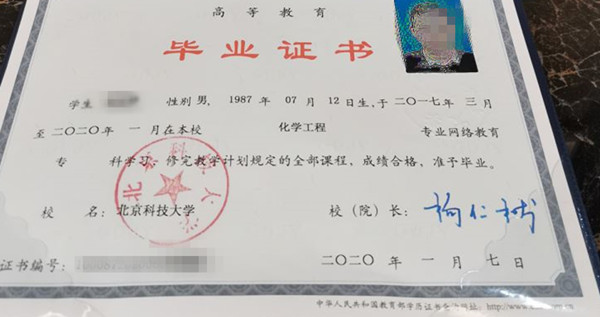 高等教育
毕业证书
学生 性别 男，1987 年 07 月 12 日生，于二〇一七年 三月
至二〇二〇年 一月在本校 化学工程 专业网络教育
专 科学习，修完教学计划规定的全部课程，成绩合格，准予毕业。
校 名：北京科技大学 校（院）长：杨仁树
北京科技大学
证书编号： 二〇二〇年 一月七日
中华人民共和国教育部学历证书查询网址：http://www.